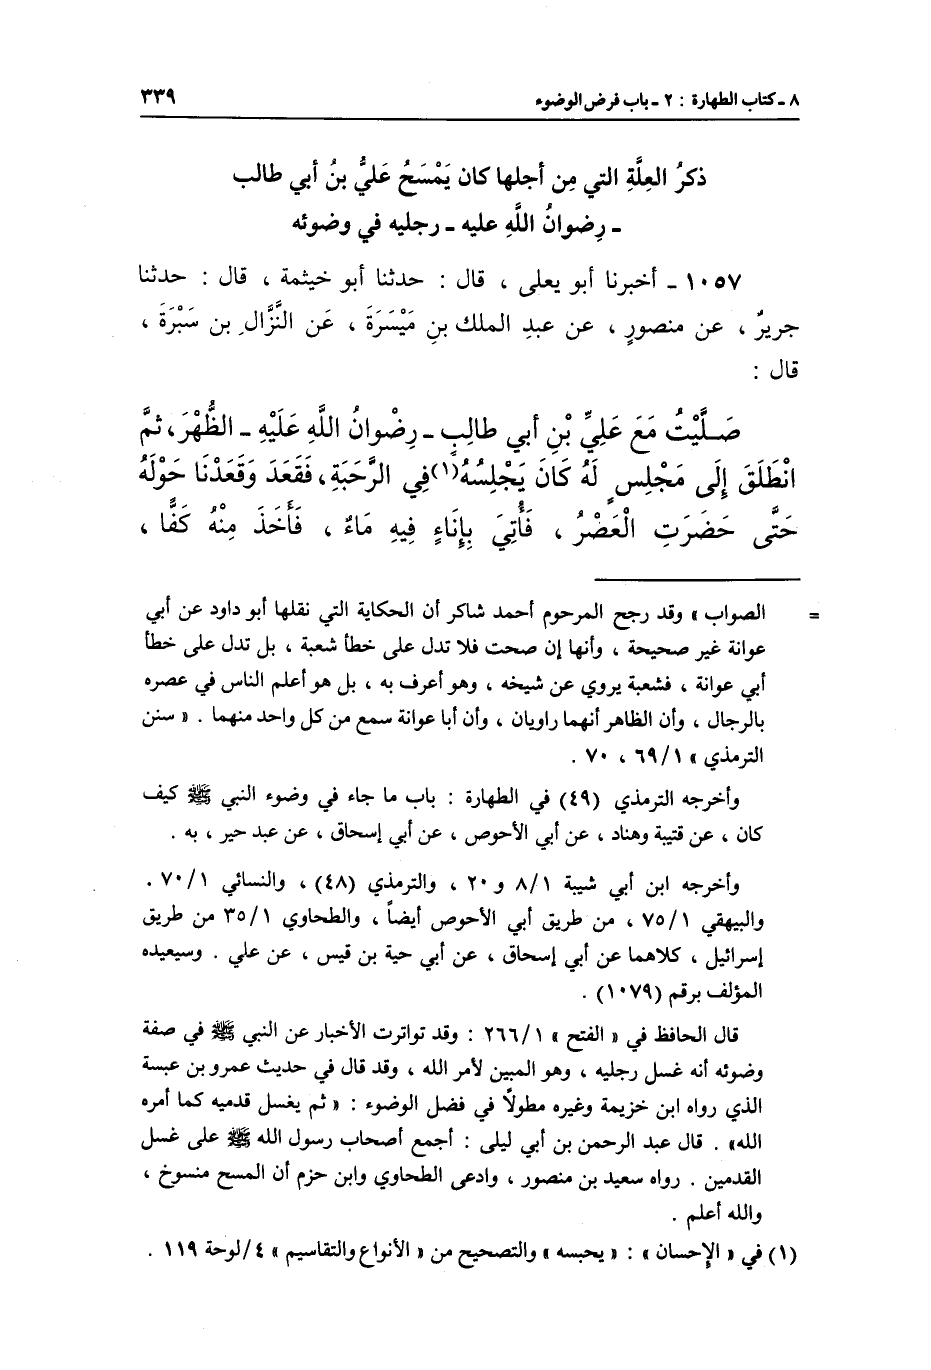 ٨ ـ كتاب الطهارة : ٢ ـ باب فرض الوضوء ٣٣٩
ذكرُ العِلَّةِ التي مِن أجلها كان يَمْسَحُ عَليُّ بنُ أبي طالب
ـ رِضوانُ اللَّهِ عليه ـ رجليه في وضوئه
١٠٥٧ ـ أخبرنا أبو يعلى ، قال : حدثنا أبو خيثمة ، قال : حدثنا
جريرٌ ، عن منصورٍ ، عن عبدِ الملك بنِ مَيْسَرَةَ ، عَن النَّزَّالِ بن سَبْرَةَ ،
قال :
صَـلَّيْتُ مَعَ عَلِيِّ بْنِ أبي طالِبٍ ـ رِضْوانُ اللَّهِ عَلَيْهِ ـ الظُّهْرَ، ثمَّ
انْطَلَقَ إِلَى مَجْلِسٍ لَهُ كَانَ يَجْلِسُهُ(١) فِي الرَّحَبَةِ، فَقَعَدَ وَقَعَدْنَا حَوْلَهُ
حَتَّى حَضَرَتِ الْعَصْرُ ، فَأُتِيَ بِإِنَاءٍ فِيهِ مَاءٌ ، فَأَخَذَ مِنْهُ كَفًّا ،
= الصواب » وقد رجح المرحوم أحمد شاكر أن الحكاية التي نقلها أبو داود عن أبي
عوانة غير صحيحة ، وأنها إن صحت فلا تدل على خطأ شعبة ، بل تدل على خطأ
أبي عوانة ، فشعبة يروي عن شيخه ، وهو أعرف به ، بل هو أعلم الناس في عصره
بالرجال ، وأن الظاهر أنهما راويان ، وأن أبا عوانة سمع من كل واحد منهما . « سنن
الترمذي » ٦٩/١ ، ٧٠ .
وأخرجه الترمذي (٤٩) في الطهارة : باب ما جاء في وضوء النبي ﷺ كيف
كان ، عن قتيبة وهناد ، عن أبي الأحوص ، عن أبي إسحاق ، عن عبد حير ، به .
وأخرجه ابن أبي شيبة ٨/١ و ٢٠ ، والترمذي (٤٨) ، والنسائي ٧٠/١ .
والبيهقي ٧٥/١ ، من طريق أبي الأحوص أيضاً ، والطحاوي ٣٥/١ من طريق
إسرائيل ، كلاهما عن أبي إسحاق ، عن أبي حية بن قيس ، عن علي . وسيعيده
المؤلف برقم (١٠٧٩) .
قال الحافظ في « الفتح » ٢٦٦/١ : وقد تواترت الأخبار عن النبي ﷺ في صفة
وضوئه أنه غسل رجليه ، وهو المبين لأمر الله ، وقد قال في حديث عمرو بن عبسة
الذي رواه ابن خزيمة وغيره مطولاً في فضل الوضوء : « ثم يغسل قدميه كما أمره
الله» . قال عبد الرحمن بن أبي ليلى : أجمع أصحاب رسول الله ﷺ على غسل
القدمين . رواه سعيد بن منصور ، وادعى الطحاوي وابن حزم أن المسح منسوخ ،
والله أعلم .
(١) في « الإحسان » : « يحبسه » والتصحيح من « الأنواع والتقاسيم » ٤/لوحة ١١٩ .